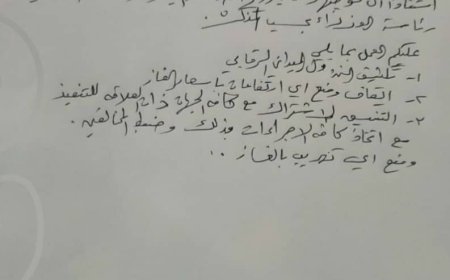 رئاسة الوزراء
عليكم العمل بما يلي
١- تكثيف النزول الميداني الرقابي
٢- ايقاف ومنع اي ارتفاعات باسعار الغاز
٣- التنسيق والاشتراك مع كافة الجهات ذات العلاقة للتنفيذ
مع اتخاذ كافة الاجراءات وضبط المخالفين .
ومنع اي تهريب بالغاز ..